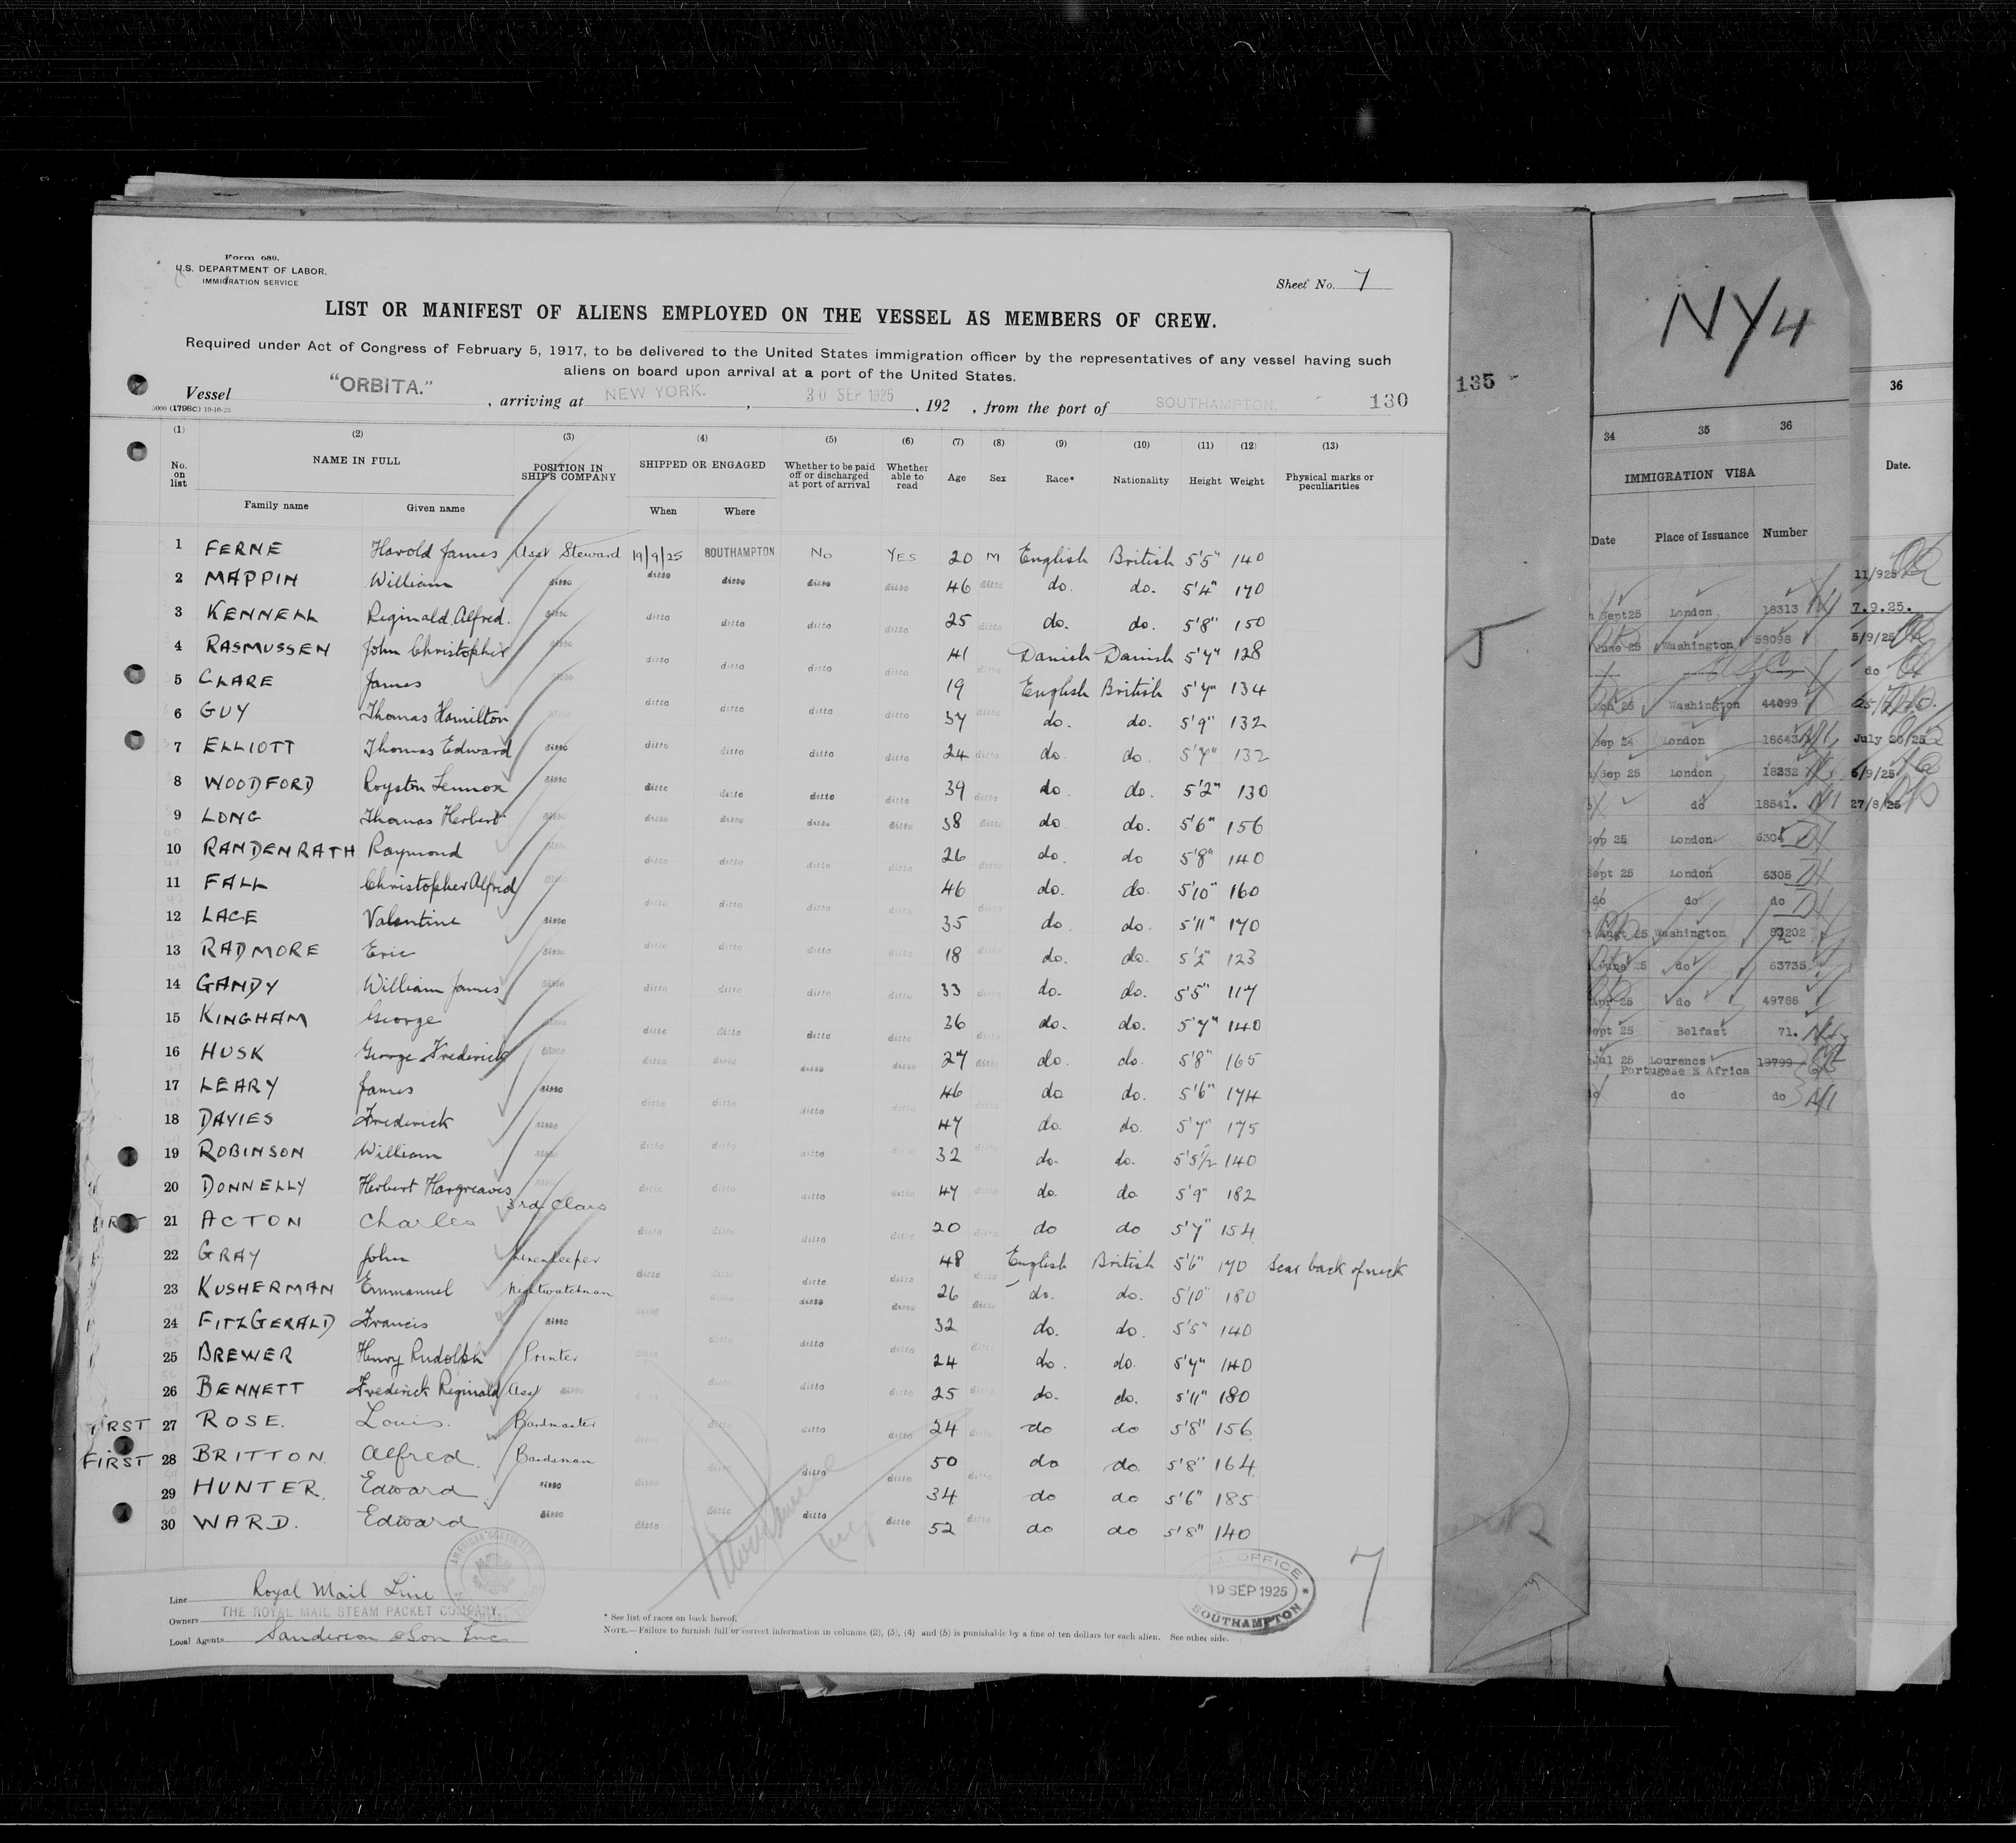 Form 680.
U.S. DEPARTMENT OF LABOR.
IMMIGRATION SERVICE
Sheet No. 7
LIST OR MANIFEST OF ALIENS EMPLOYED ON THE VESSEL AS MEMBERS OF CREW.
Required under Act of Congress of February 5, 1917, to be delivered to the United States immigration officer by the representatives of any vessel having such
aliens on board upon arrival at a port of the United States.
Vessel "ORBITA." , arriving at NEW YORK. , 30 SEP 1925 , 192 , from the port of SOUTHAMPTON. 130
5000 (1798C) 19-10-23
(1) (2) (3) (4) (5) (6) (7) (8) (9) (10) (11) (12) (13)
No. on list NAME IN FULL POSITION IN SHIP'S COMPANY SHIPPED OR ENGAGED Whether to be paid off or discharged at port of arrival Whether able to read Age Sex Race* Nationality Height Weight Physical marks or peculiarities
Family name Given name When Where
1 FERNE Harold James Asst Steward 19/9/25 SOUTHAMPTON No YES 20 M English British 5'5" 140
2 MAPPIN William ditto ditto ditto ditto ditto 46 ditto do. do. 5'4" 170
3 KENNELL Reginald Alfred. ditto ditto ditto ditto ditto 25 ditto do. do. 5'8" 150
4 RASMUSSEN John Christopher ditto ditto ditto ditto ditto 41 ditto Danish Danish 5'7" 128
5 CLARE James ditto ditto ditto ditto ditto 19 English British 5'7" 134
6 GUY Thomas Hamilton ditto ditto ditto ditto 37 ditto do. do. 5'9" 132
7 ELLIOTT Thomas Edward ditto ditto ditto ditto ditto 24 ditto do. do. 5'7" 132
8 WOODFORD Royston Lennox ditto ditto ditto ditto ditto 39 ditto do. do. 5'2" 130
9 LONG Thomas Herbert ditto ditto ditto ditto ditto 38 ditto do do. 5'6" 156
10 RANDENRATH Raymond ditto ditto ditto ditto ditto 26 ditto do. do 5'8" 140
11 FALL Christopher Alfred ditto ditto ditto ditto ditto 46 ditto do. do. 5'10" 160
12 LACE Valentine ditto 35 do. do. 5'11" 170
13 RADMORE Eric ditto ditto ditto ditto ditto 18 ditto do. do. 5'2" 123
14 GANDY William James ditto ditto ditto ditto ditto 33 ditto do. do. 5'5" 117
15 KINGHAM George ditto ditto ditto ditto ditto 36 ditto do. do. 5'7" 140
16 HUSK George Frederick ditto ditto ditto ditto ditto 27 ditto do. do. 5'8" 165
17 LEARY James ditto ditto ditto ditto ditto 46 ditto do do. 5'6" 174
18 DAVIES Frederick ditto 47 do. do. 5'7" 175
19 ROBINSON William ditto ditto ditto ditto 32 do. do. 5'5½ 140
20 DONNELLY Herbert Hargreaves ditto ditto ditto ditto ditto 47 ditto do. do 5'9" 182
21 ACTON Charles 3rd Class ditto ditto ditto ditto 20 ditto do do 5'7" 154
22 GRAY John Linenkeeper 48 English British 5'6" 170 Scar back of neck
23 KUSHERMAN Emmanuel Nightwatchman ditto ditto ditto ditto 26 ditto do. do. 5'10" 180
24 FITZGERALD Francis ditto ditto ditto ditto 32 ditto do. do. 5'5" 140
25 BREWER Henry Rudolph Printer ditto ditto ditto ditto 24 do. do. 5'7" 140
26 BENNETT Frederick Reginald Asst ditto ditto ditto ditto 25 ditto do. do. 5'11" 180
FIRST 27 ROSE. Louis. Bandmaster ditto ditto ditto 24 ditto do do 5'8" 156
FIRST 28 BRITTON. Alfred. Bandsman ditto 50 do do. 5'8" 164
29 HUNTER. Edward ditto ditto ditto ditto 34 ditto do do 5'6" 185
30 WARD. Edward ditto ditto ditto ditto ditto 52 ditto do do 5'8" 140
Line Royal Mail Line
Owners THE ROYAL MAIL STEAM PACKET COMPANY.
Local Agents Sanderson & Son Inc.
* See list of races on back hereof.
NOTE.—Failure to furnish full or correct information in columns (2), (3), (4) and (5) is punishable by a fine of ten dollars for each alien. See other side.
OFFICE
19 SEP 1925
SOUTHAMPTON
7
135
NY4
34 35 36
IMMIGRATION VISA
Date Place of Issuance Number
Sept25 London 18313
June 25 Washington 59098
25 Washington 44099
Sep 24 London 18643
Sep 25 London 18232
do 18541.
Sep 25 London 6304
Sept 25 London 6305
do do do
Augt 25 Washington
June 25 do 63735
Apr 25 do 49788
Sept 25 Belfast 71.
Jul 25 Lourenca 19799
Portugese E Africa
do do do
36
Date.
11/925
7.9.25.
5/9/25
do
July 26/25
6/9/25
27/8/25